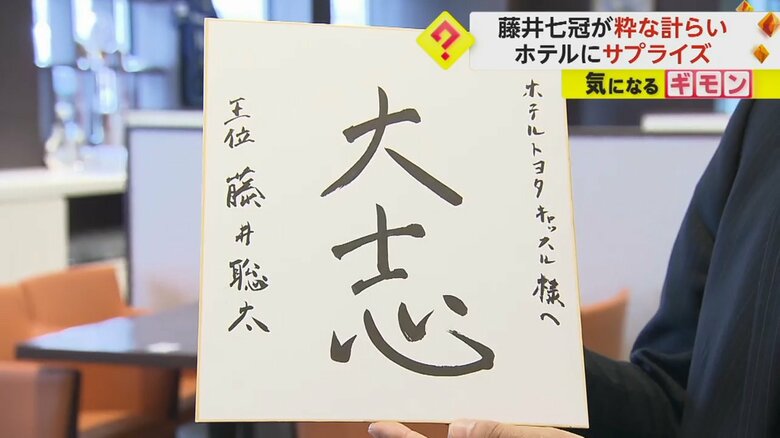 藤井七冠が粋な計らい
ホテルにサプライズ
気になるギモン
?
ホテルトヨタキャッスル様へ
大志
王位 藤井聡太